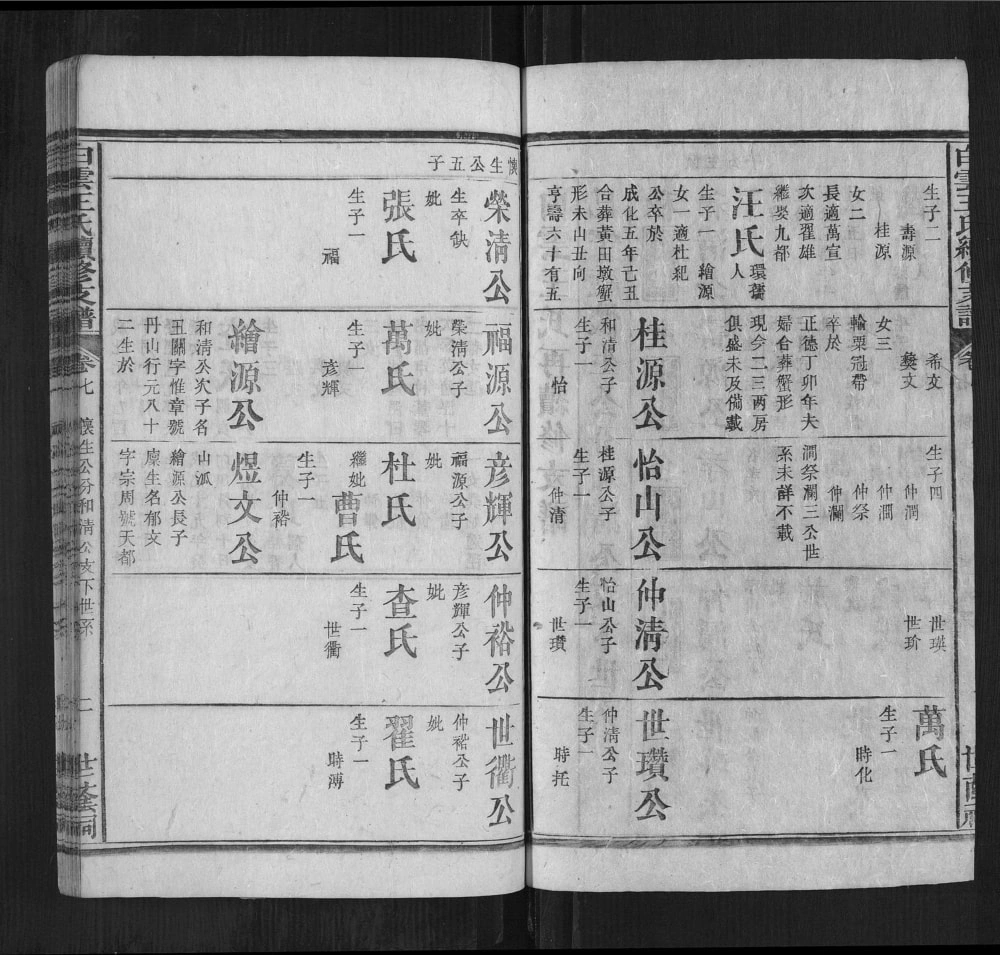 生子二
壽源
桂源
女二
長適萬宣
次適翟雄
繼娶九都
汪氏
環舊
人
生子一 繪源
女一適杜紀
公卒於
成化五年己丑
合葬黃田墩蟹
形未山丑向
亨壽六十有五
希文
獎文
女三
輸粟冠帶
卒於
正德丁卯年夫
婦合葬蟹形
現今二三兩房
俱盛未及備載
桂源公
和清公子
生子一
怡
生子四
仲潤
仲澗
仲祭
仲瀾
澗祭瀾三公世
系未詳不載
怡山公
桂源公子
生子一
仲清
世瑛
世玠
仲清公
怡山公子
生子一
世瓚
萬氏
生子一
時化
世瓚公
仲清公子
生子一
時托
懷生公五子
榮清公
生卒缺
妣
張氏
生子一
福
福源公
榮清公子
妣
萬氏
生子一
彥輝
繪源公
和清公次子名
丑關字惟章號
丹山行元八十
二生於
彥輝公
福源公子
妣
杜氏
繼妣
曹氏
生子一
仲裕
煜文公
山派
繪源公長子
廩生名郁文
字宗周號天都
仲裕公
彥輝公子
妣
查氏
生子一
世衢
世衢公
仲裕公子
妣
翟氏
生子一
時溥
白雲王氏續修支譜
卷七
懷生公分和清公支下世系
二
世蔭祠